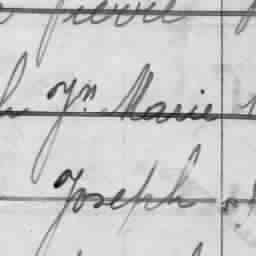 Pierre
Jn Marie
Joseph